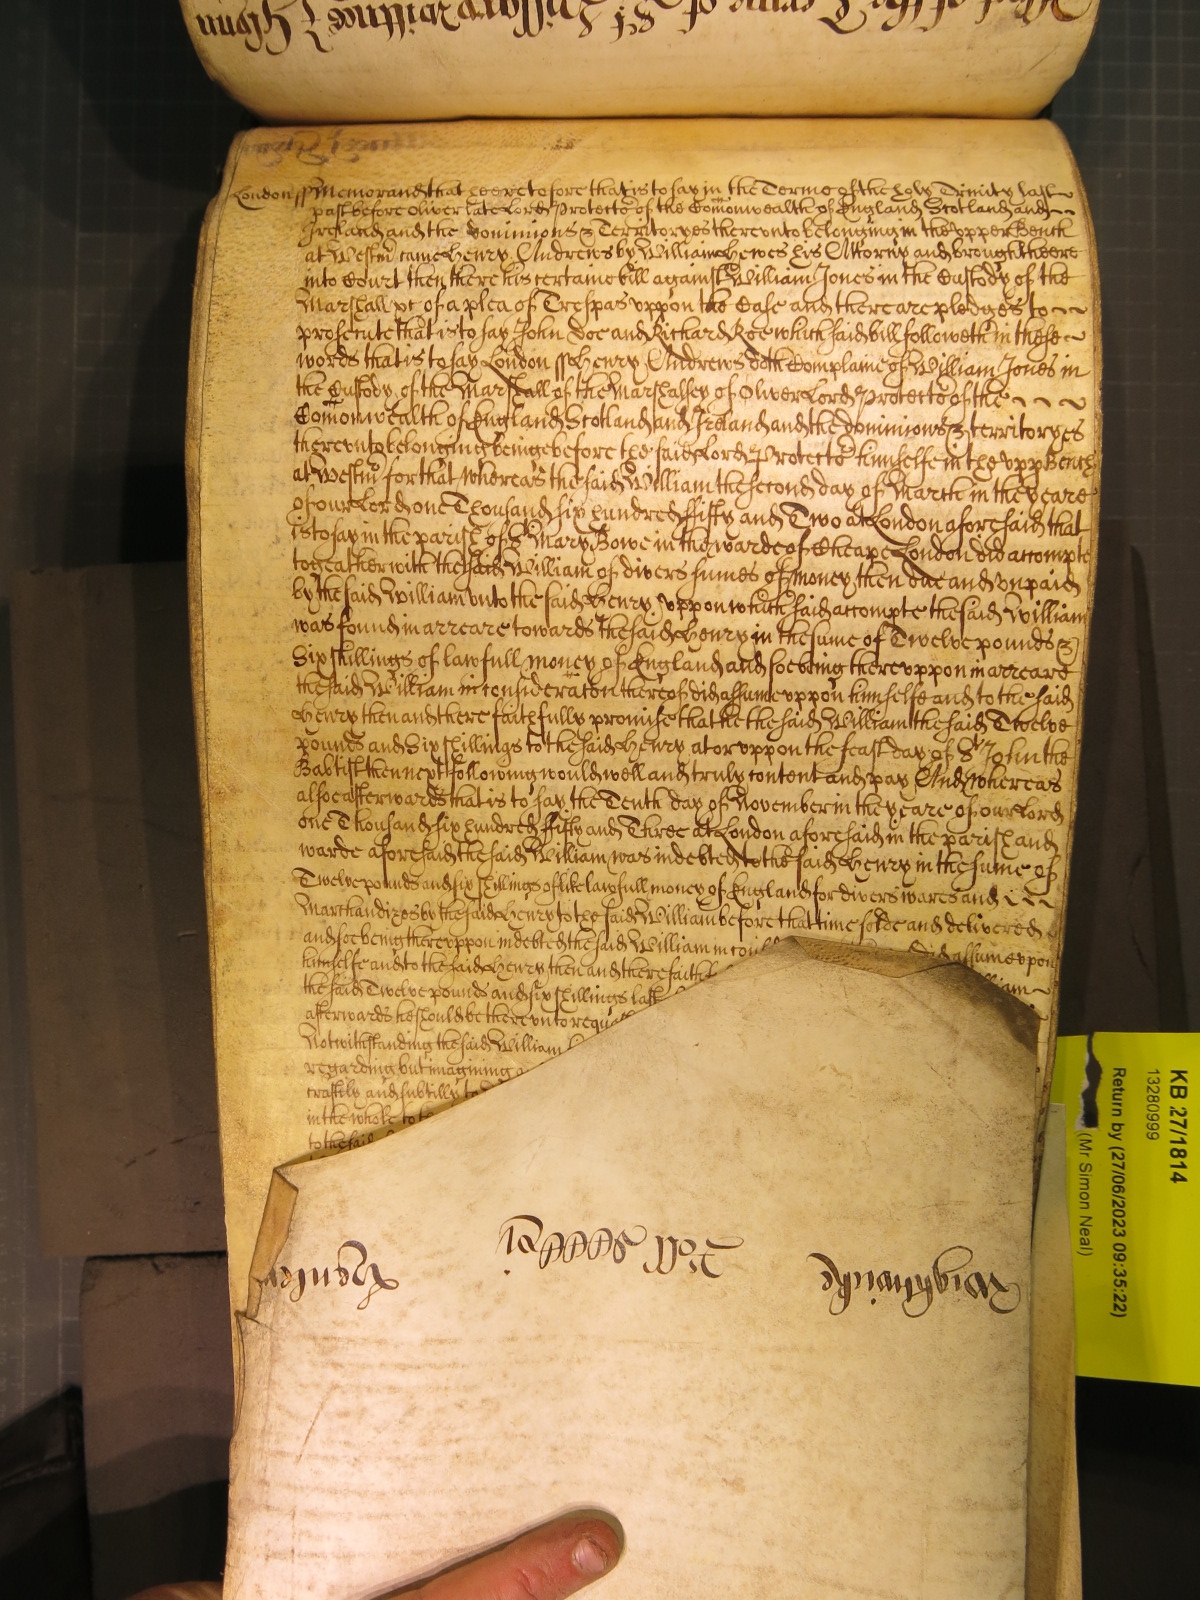 London ss Memorand that heeretofore that is to say in the Terme of the holy Trinity last
past before Oliver late Lord Protector of the Comonwealth of England Scotland and
Ireland and the dominions & Territoryes thereunto belonging in the upper bench
at Westm came Henry Andrews by William Hewes his Attorny and brought heere
into Court then there his certaine bill against William Jones in the Custody of the
Marshall &c of a plea of Trespas uppon the Case and there are pledges to
prosecute that is to say John Doe and Richard Roe which said bill followeth in these
words that is to say London ss Henry Andrews doth Complaine of William Jones in
the Custody of the Marshall of the Marshalsey of Oliver Lord Protector of the
Comonwealth of England Scotland and Ireland and the dominions & territoryes
thereunto belonging being before the said Lord Protector himselfe in the upp Bench
at Westm for that whereas the said William the second day of March in the yeare
of our Lord one Thousand six hundred fifty and Two at London aforesaid that
is to say in the parish of St Mary Bowe in the warde of Cheape London did accompte
togeather with the said William of divers sumes of money then due and unpaid
by the said William unto the said Henry uppon which said accompte the said William
was found in arreare towards the said Henry in the sume of Twelve pounds &
Six shillings of lawfull money of England and soe being thereuppon in arreare
the said William in consideracon thereof did assume uppon himselfe and to the said
Henry then and there faithfully promise that he the said William the said Twelve
pounds and Six shillings to the said Henry at or uppon the feast day of St John the
Babtist then next following would well and truly content and pay And whereas
alsoe afterwards that is to say the Tenth day of November in the yeare of our Lord
one Thousand six hundred fifty and Three at London aforesaid in the parish and
warde aforesaid the said William was indebted to the said Henry in the sume of
Twelve pounds and six shillings of like lawfull money of England for divers wares and
Marchandizes by the said Henry to the said William before that time solde and delivered
and soe being thereuppon indebted the said William in did assume upon
himselfe and to the said Henry then and there
the said Twelve pounds and six shillings last
afterwards he should be thereunto
Notwithstanding the said William
regarding but imagining
craftily and subtilly to
in the whole to
to the said
Wightwicke
Roll
KB 27/1814
13280999
Return by (27/06/2023 09:35:22)
(Mr Simon Neal)